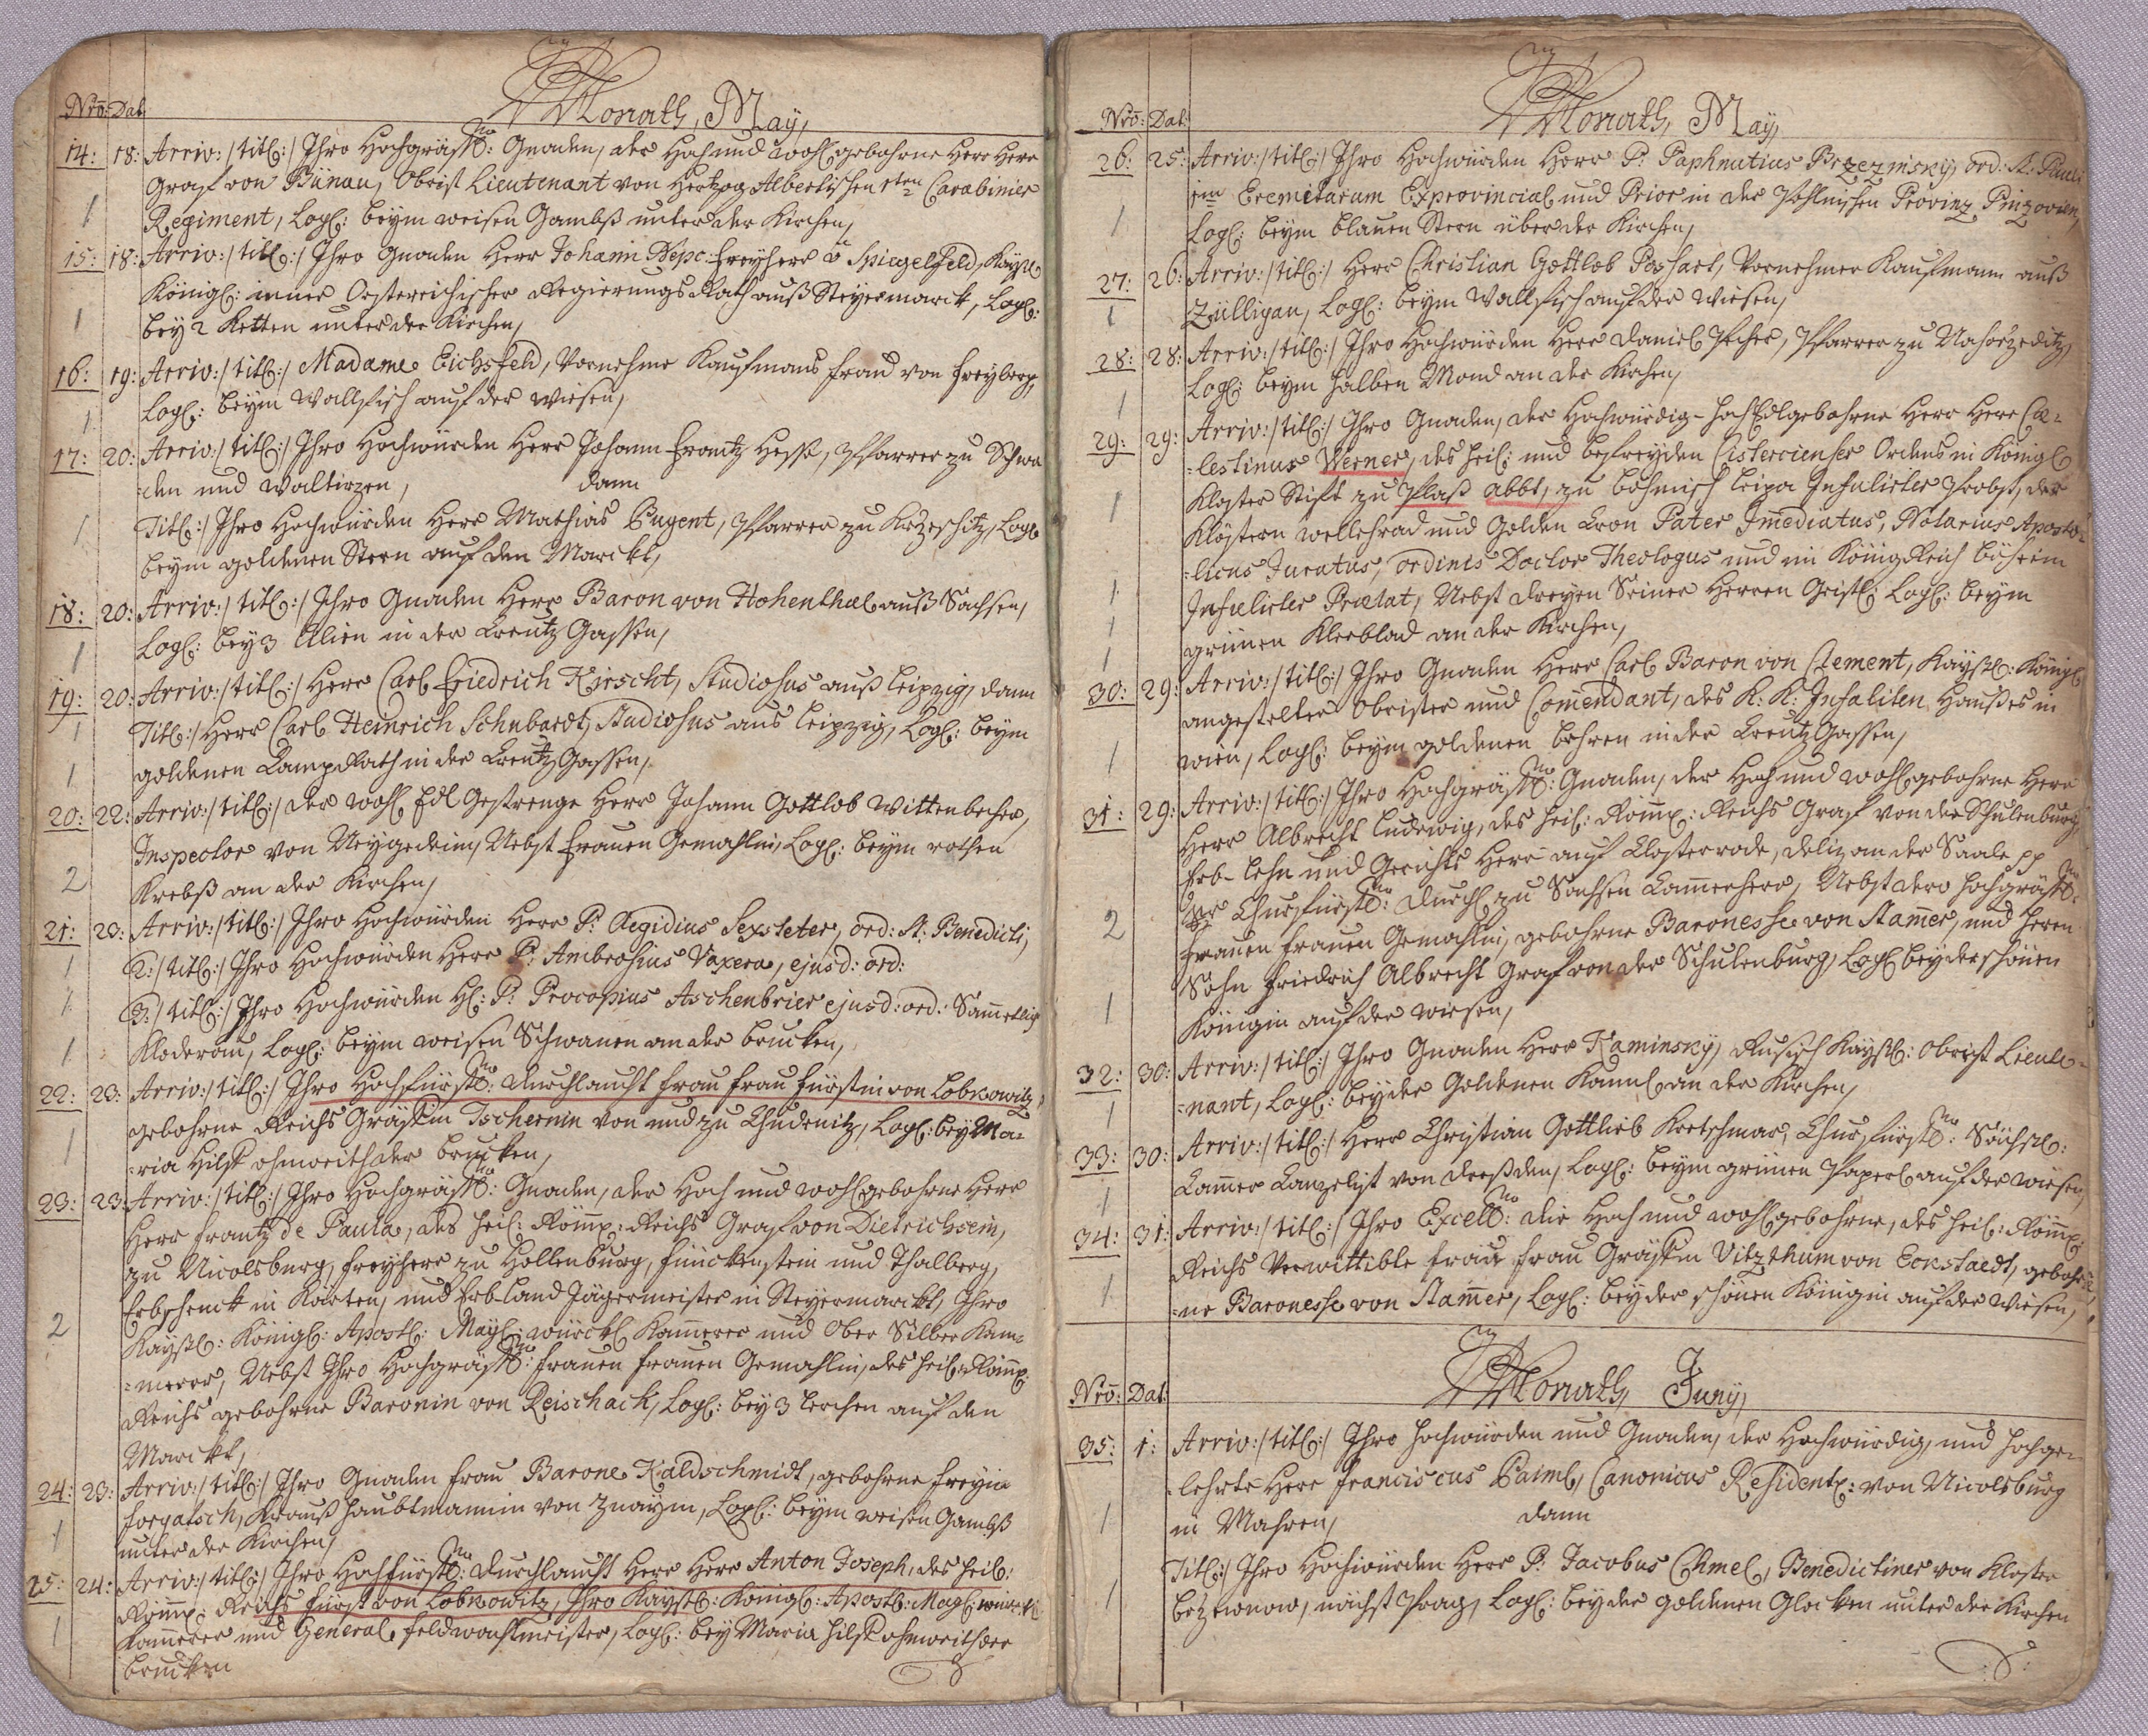 Nro: Dat:
Monath, May,
14: 18: Arriv: /:titl:/ Ihro Hochgräfl: Gnaden, der Hoch und wohl gebohrne Herr Herr
Graf von Bünau, Obrist Lieutenant von Hertzog Albertischen Carabinier
1 Regiment, Logl: beym weisen Gambß unter der Kirchen,
15: 18: Arriv: /:titl:/ Ihro Gnaden Herr Johann Nepc: Freyherr v Spiegelfeld, Kaÿsl
Königl: inner Oestereichischer Regierungs Rath auß Steyermarck, Logl:
1 beÿ 2 Ketten unter der Kirchen,
16: 19: Arriv: /:titl:/ Madame Eichsfeld, Vornehme Kaufmans Frau von Freyberg,
1 Logl: beym Wallfisch auf der Wiesen,
17: 20: Arriv: /:titl:/ Ihro Hochwürden Herr Johann Frantz Hesse, Pfarrer zu Schwa
=den und Waltirzen, dann
1 Titl:/ Ihro Hochwürden Herr Mathias Pugent, Pfarrer zu Krzeschitz, Logl
beym goldenen Stern auf den Marckt,
18: 20: Arriv: /:titl:/ Ihro Gnaden Herr Baron von Hohenthal auß Sachsen,
1 Logl: beÿ 3 Lilien in der Creutz Gassen,
19: 20: Arriv: /:titl:/ Herr Carl Friedrich Kirscht, Studiosus auß Leipzig, dann
1 Titl:/ Herr Carl Heinrich Schubardt, Studiosus aus Leipzig, Logl: beym
1 goldenen in der Creutz Gassen,
20: 22: Arriv: /:titl:/ der wohl Edl Gestrenge Herr Johann Gottlob Wittenbecher,
Inspector von Neygedein, Nebst Frauen Gemahlin, Logl: beym rothen
2 Krebß an der Kirchen,
21: 23: Arriv: /:titl:/ Ihro Hochwürden Herr P: Aegidius Sexsteter, ord: St: Benedicti,
1 2:/ titl:/ Ihro Hochwürden Herr P: Ambrosius Vaxera, ejusd: ord:
1 3:/ titl:/ Ihro Hochwürden H: P: Procopius Aschenbrier ejusd: ord: Sammetlich
1 Kloderau, Logl: beym weisen Schwanen an der brucken,
22: 23: Arriv: /:titl:/ Ihro Hochfürstl: Durchlaucht Frau Frau Fürstin von Lobkowitz,
1 gebohrne Reichs Gräffin Tschernin von und zu Chudenitz, Logl: beÿ Ma=
=ria Hilf ohnweith der brucken,
23: 23: Arriv: /:titl:/ Ihro Hochgräfl: Gnaden, der Hoch und wohl gebohrne Herr
Herr Frantz de Paula, des heil: Römp: Reichs Graf von Dietrichsein,
zu Nicolsburg, Freyherr zu Hollenburg, Finckenstein und Thalberg,
Erbschenck in Kärten, und Erb-Land Jägermeister in Steyermarckt, Ihro
2 Kaÿsl: Königl: Apostl: Mayl: würckl Kammerer und Ober Silber Kam=
=merer, Nebst Ihro Hochgräfl: Frauen Frauen Gemahlin, des heil: Römp:
Reichs gebohrne Baronin von Reischach, Logl: beÿ 3 Lerchen auf den
Marckt,
24: 23: Arriv: /:titl:/ Ihro Gnaden Frau Barone Kaldschmidt, gebohrne Freyin
1 Forgatsch, Krayß Haubtmannin von Znaym, Logl: beym weisen Gambß
unter der Kirchen,
25: 24: Arriv: /:titl:/ Ihro Hochfürstl: Durchlaucht Herr Herr Anton Joseph, des heil:
Römp: Reichs Fürst von Lobkowitz, Ihro Kaÿsl: Königl: Apostl: Mayl: würckl:
1 Kammerer und General Feldwachtmeister, Logl: beÿ Maria Hilf ohnweith der
brucken
Nro: Dat:
Monath, May,
26: 25: Arriv: /:titl:/ Ihro Hochwürden Herr P: Paphnutius Brzezinsky, ord: St: Pauli
Eremitarum Exprovincial und Prior in der Pohlnischen Provinz Pinzovien,
1 Logl: beym blauen Stern über der Kirchen,
27: 26: Arriv: /:titl:/ Herr Christian Gottlob Poshart, Vornehmer Kaufmann auß
1 Zülligau, Logl: beym Wallfisch auf der Wiesen,
28: 28: Arriv: /:titl:/ Ihro Hochwürden Herr Daniel Pecher, Pfarrer zu Nahorzeditz,
1 Logl: beym halben Mond an der Kirchen,
29: 29: Arriv: /:titl:/ Ihro Gnaden, der Hochwürdig- HochEdlgebohrne Herr Herr Cæ=
=lestinus Werner, des heil: und befreyden Cistercienser Ordens in Königl
1 Kloster Stift zu Plaß Abbt, zu böhmisch Leipa Infulirter Probst, der
Klöstern Wellehrad und Golden Cron Pater Immediatus, Notarius Aposto=
=licus Juratus, ordinis Doctor Theologus und im Königreich böheim
1 Infulirter Prælat, Nebst dreyen Seiner Herren Geistl: Logl: beym
1 grünen Kleeblad an der Kirchen,
1
30: 29: Arriv: /:titl:/ Ihro Gnaden Herr Carl Baron von Clement, Kaÿsl: Königl
angestelter Obrister und Comendant, des K: K: Infaliten Haußes in
1 Wien, Logl: beym goldenen Behren in der Creutz Gassen,
31: 29: Arriv: /:titl:/ Ihro Hochgräfl: Gnaden, der Hoch und wohl gebohrne Herr
Herr Albrecht Ludewig, des heil: Römp: Reichs Graf von der Schulenburg,
Erb- Lehn und Gerichts Herr auf Closterrode, Deliz an der Saale pp
Chursfürstl: Durchl zu Sachsen Cammerherr, Nebst dero Hochgräfl:
2 Frauen Frauen Gemahlin, gebohrne Baronesse von Stamer, und Herrn
Sohn Friedrich Albrecht Graf von der Schulenburg, Logl beÿ der schönen
1 Königin auf der Wiesen,
32: 30: Arriv: /:titl:/ Ihro Gnaden Herr Kaminsky, Rusisch Kaÿsl: Obrist Lieute=
1 =nant, Logl: beÿ der Goldenen Kannl an der Kirchen,
33: 30: Arriv: /:titl:/ Herr Christian Gottlieb Kretschmar, Chursfürstl: Sächsl:
1 Cammer Canzelist von Dreßden, Logl: beym grünen Paperl auf der Wiesen,
34: 31: Arriv: /:titl:/ Ihro Excell: die Hoch und wohl gebohrne, des heil: Römp:
Reichs Verwittible Frau Frau Gräffin Vitzthum von Eckstaedt, gebohr=
1 =ne Baronesse von Stamer, Logl: beÿ der schönen Königin auf der Wiesen,
Monath, Juny,
Nro: Dat:
35: 1: Arriv: /:titl:/ Ihro Hochwürden und Gnaden, der Hochwürdig, und Hochge=
=lehrte Herr Franciscus Paiml, Canonicus Residentz: von Nicolsburg
1 in Mahren, dann
Titl:/ Ihro Hochwürden Herr P: Jacobus Chmel, Benedictiner von Kloster
1 Brzewnow, nächst Prag, Logl: beÿ der goldenen Glocken unter der Kirchen